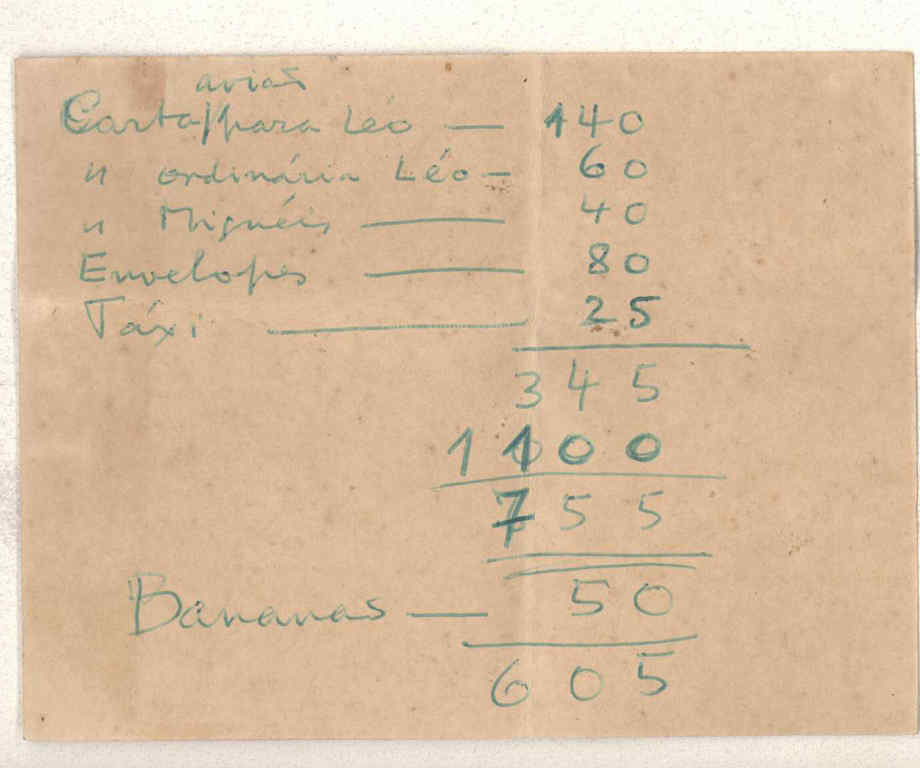 avião
Carta para Léo — 140
" ordinária Léo — 60
" Miguéis — 40
Envelopes — 80
Táxi — 25
345
1100
755
Bananas — 50
605